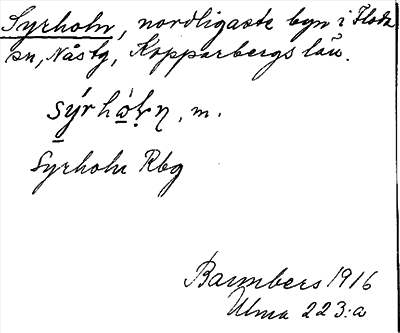 Syrholn, nordligaste byn i Floda
sn, Nås tg, Kopparbergs län.
sýrhòłn, m.
Syrholn Rbg
Bannbers 1916
Ulma 223:a